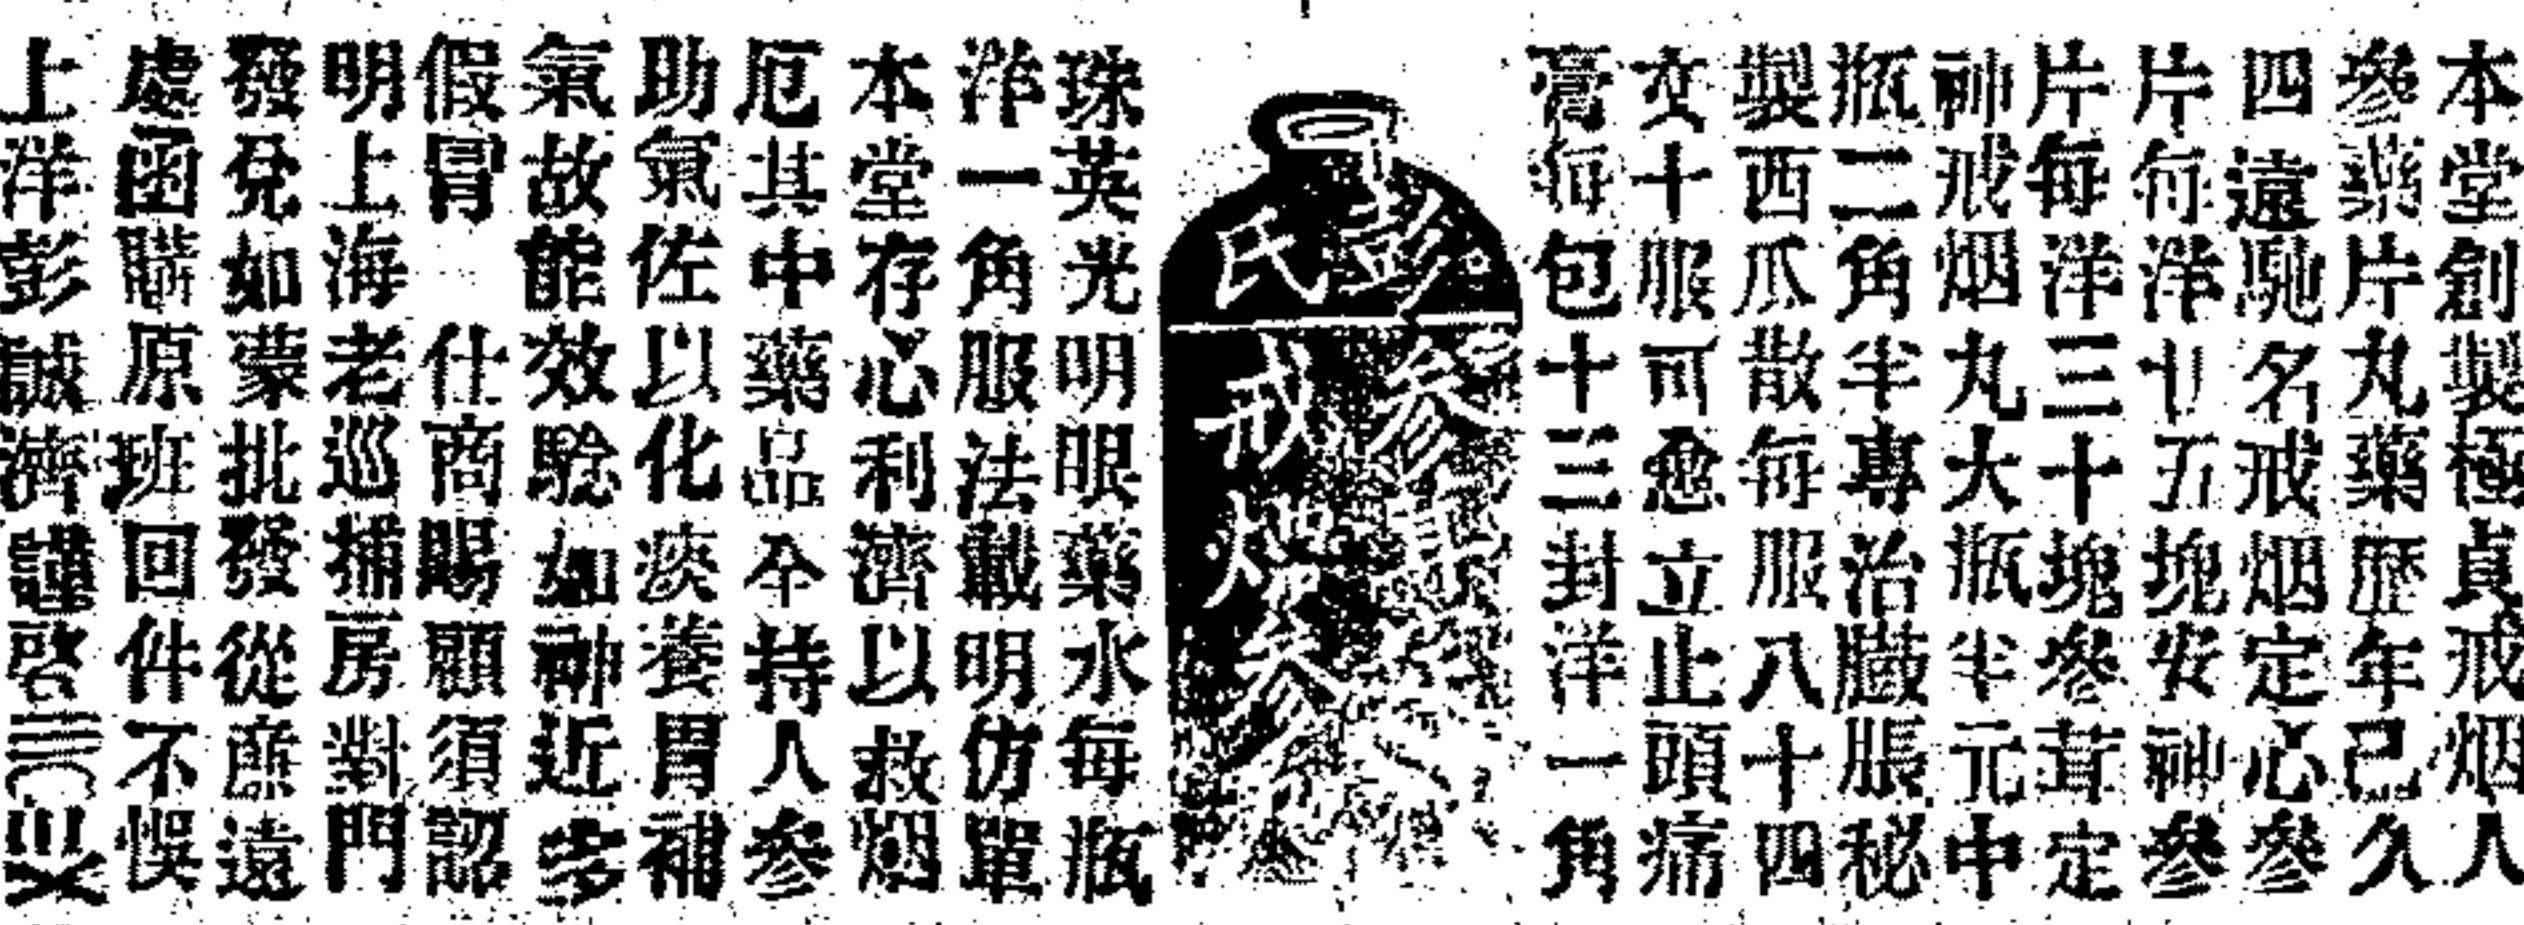 本堂創製極貞戒烟人
參藥片丸藥歷年己久
四遠馳名戒烟定心參
片每洋十五塊安神參
片每洋三十塊參茸定
神戒烟丸大瓶半元中
瓶二角半專治臌脹秘
製西瓜散每服八十四
文十服可愈立止頭痛
膏每包十三封洋一角
彭氏
參
戒烟參
珠英光明眼藥水每瓶
洋一角服法載明仿單
本堂存心利濟以救烟
厄其中藥品全持人參
助氣佐以化痰養胃補
氣故能效騐如神近多
假冒 仕商賜顧須認
明上海老巡捕房對門
發兌如蒙批發從廉遠
處函購原班回件不悞
上洋彭誠濟謹啓